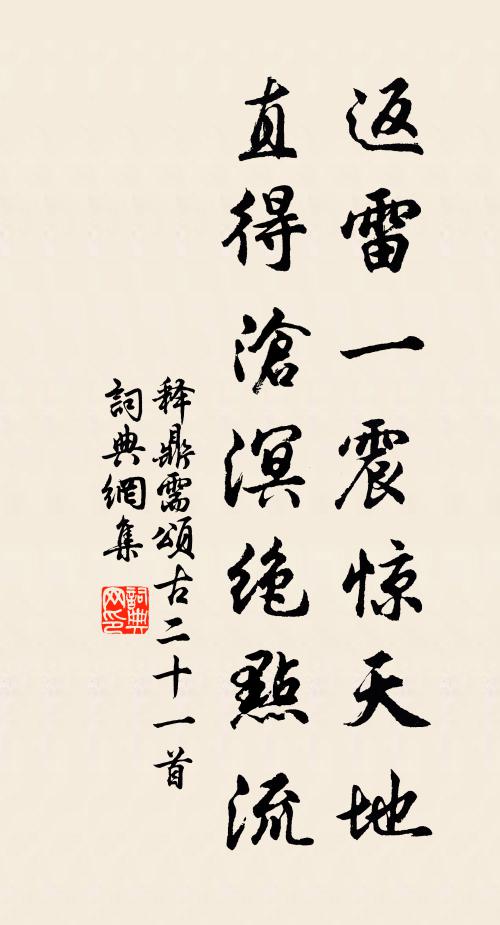 返雷一震惊天地
直得滄溟绝點流
释鼎需頌古二十一首
詞典網集
詞典网印